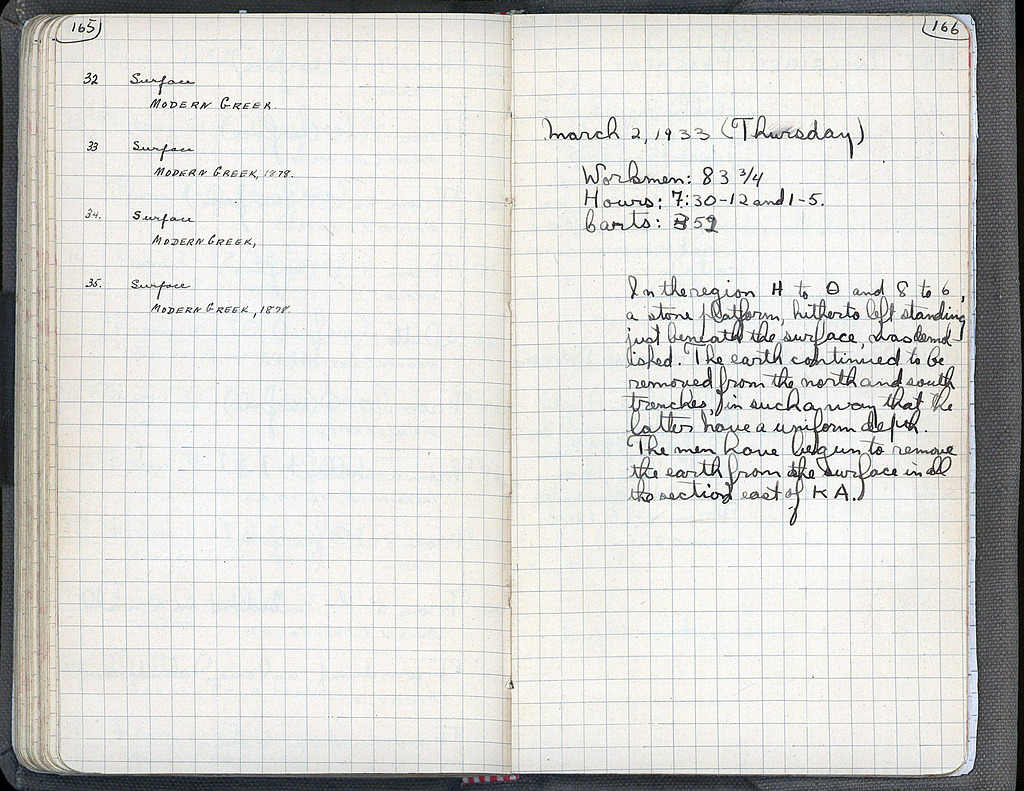 165
32 Surface
MODERN GREEK.
33 Surface
MODERN GREEK, 1878.
34. Surface
MODERN GREEK,
35. Surface
MODERN GREEK, 1878.
166
March 2, 1933 (Thursday)
Workmen: 83 3/4
Hours: 7:30-12 and 1-5.
Carts: 352
In the region H to Θ and 8 to 6,
a stone platform, hitherto left standing
just beneath the surface, was demo
lished. The earth continued to be
removed from the north and south
trenches, in such a way that the
latter have a uniform depth.
The men have begun to remove
the earth from the surface in all
the section east of KA.